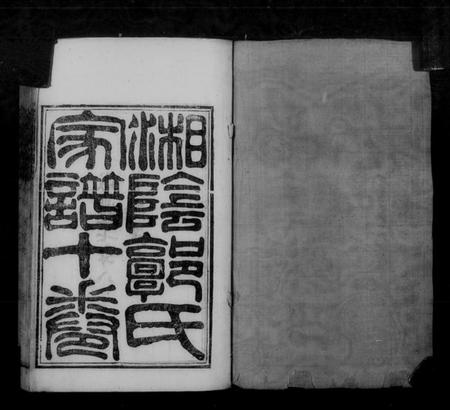 湘陰郭氏
家譜十卷